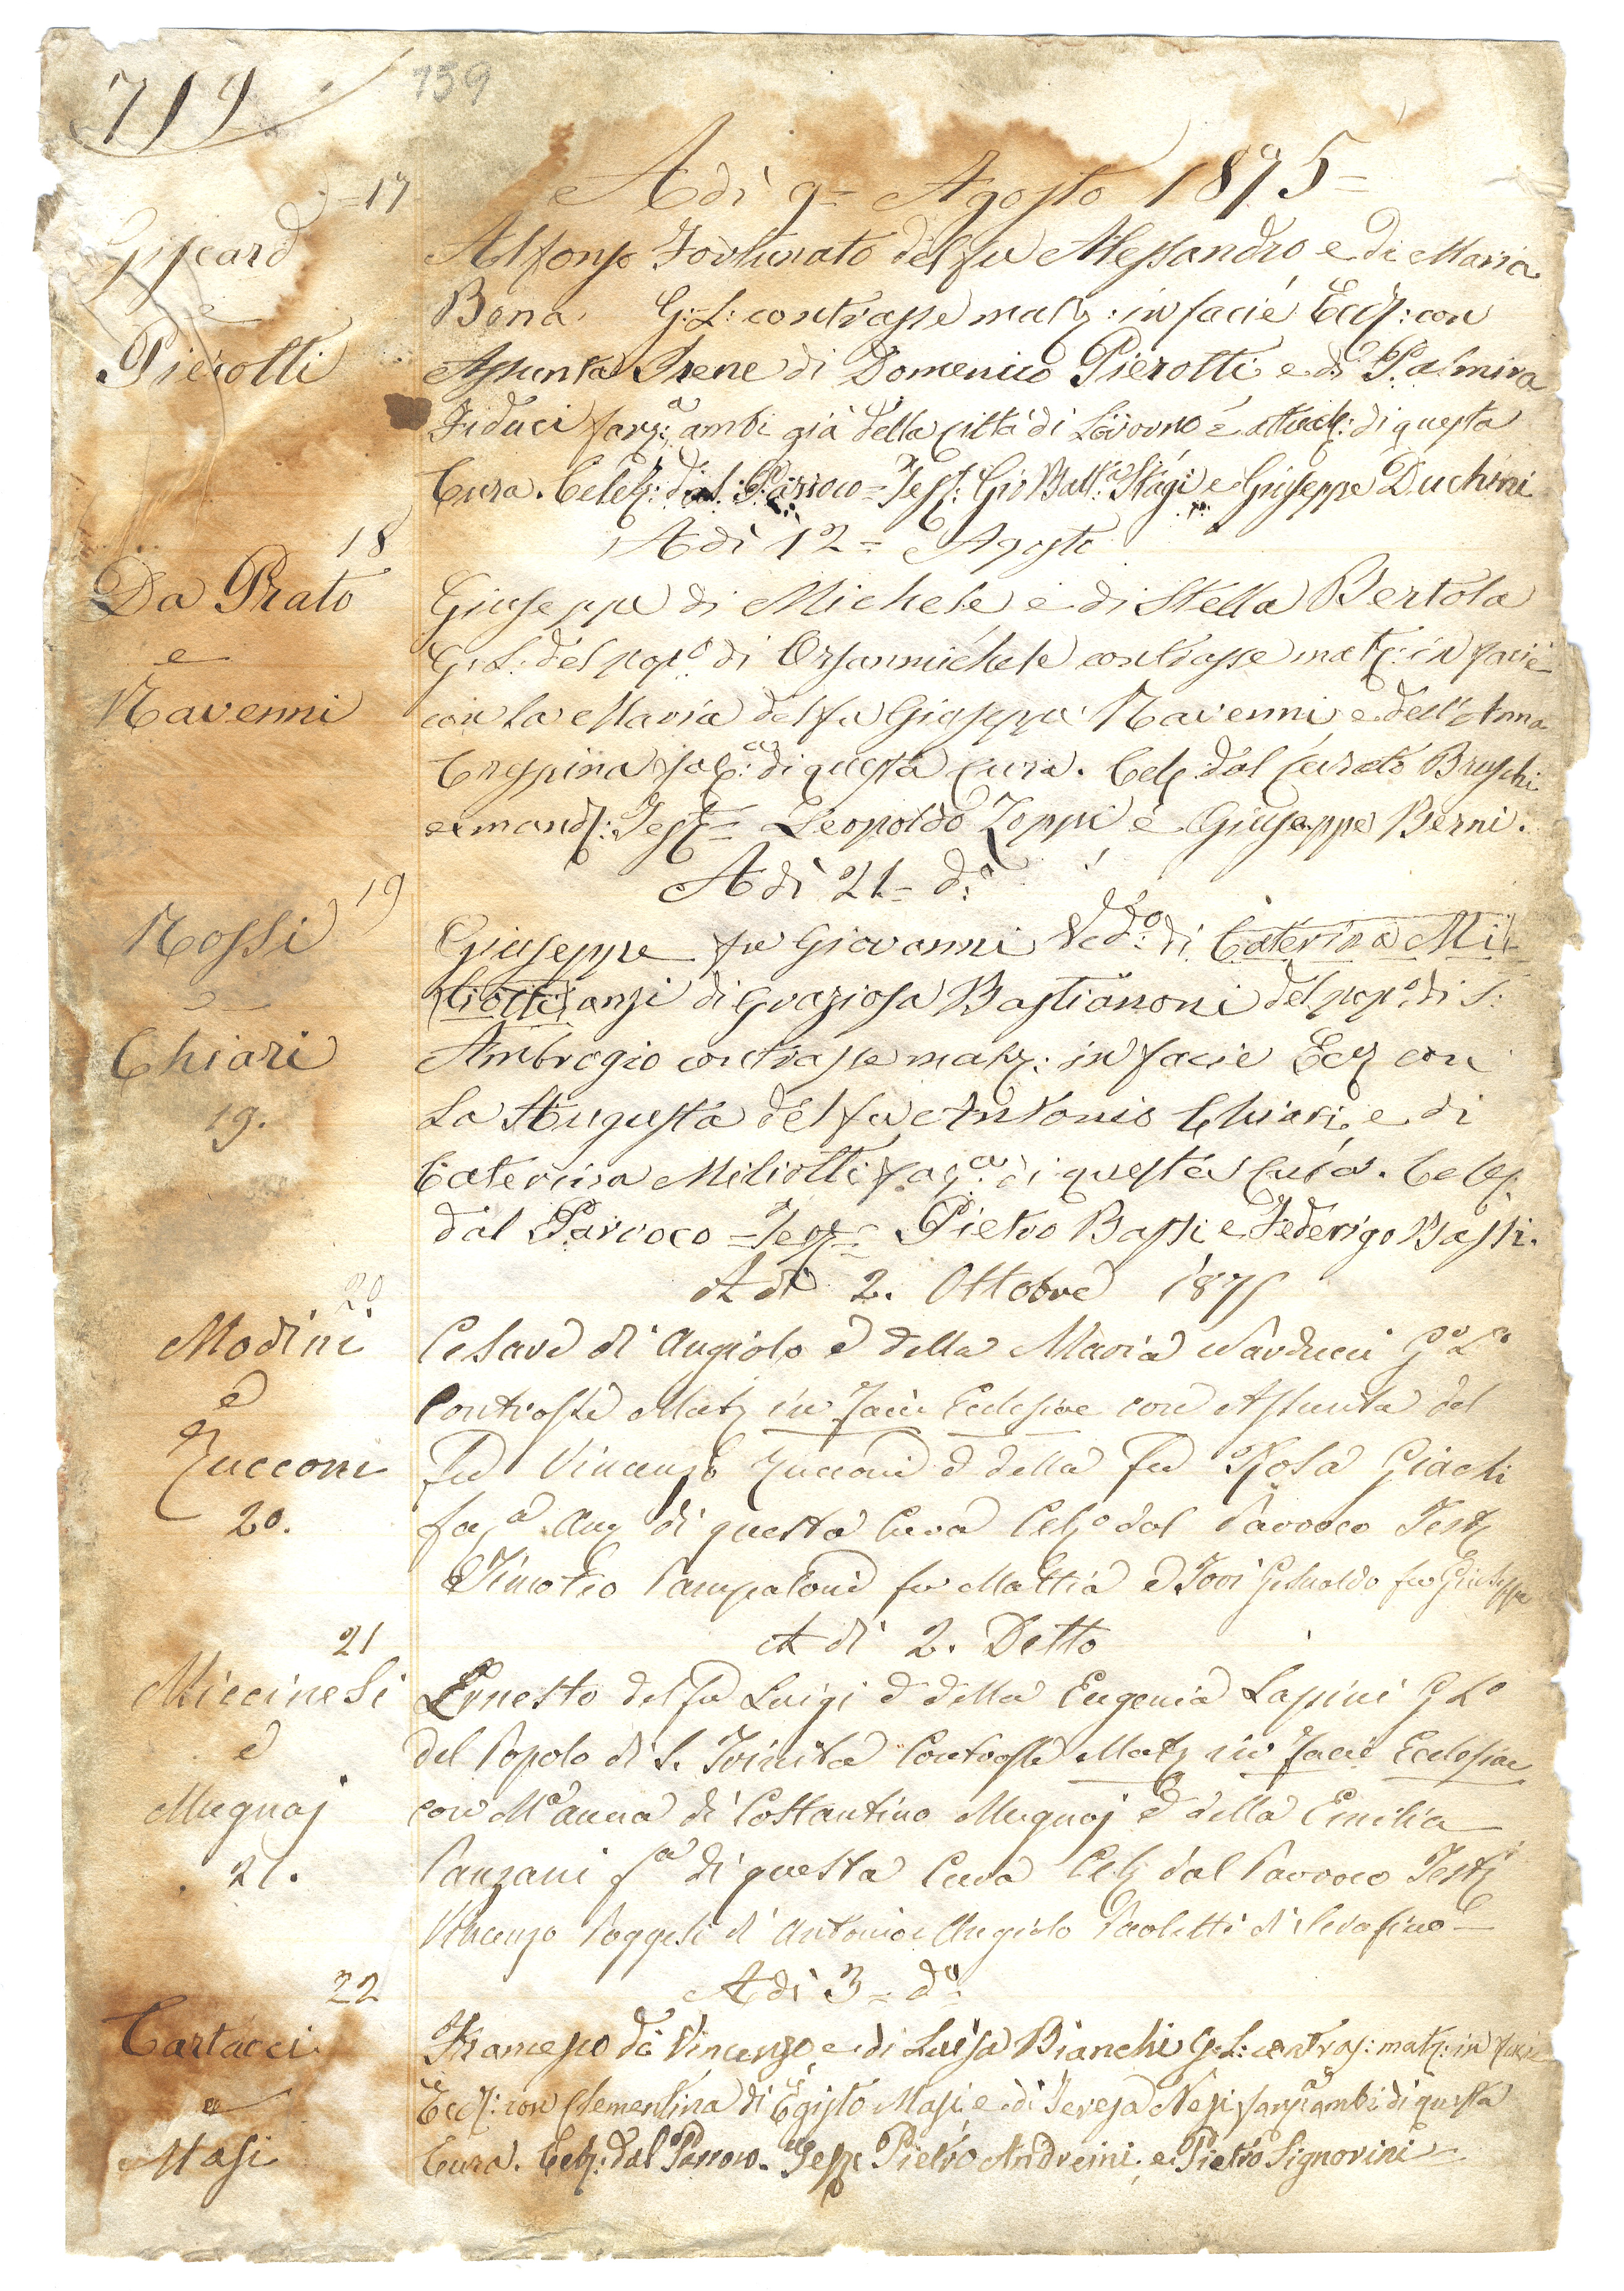 719 759
Adì 9= Agosto 1875=
=17
Giscard
e
Pierotti
Alfonso Fortunato del fu Alessandro e di Maria
Bona G: L: contrasse matr: in facie Eccl: con
Assunta Irene di Domenico Pierotti e di Palmira
Fiduci fanz:a ambi già della città di Livorno e attual: di questa
Cura. Celeb: dal Parroco = Test: Gio Batt:a Stagi e Giuseppe Duchini
Adì 12= Agosto
18
Da Prato
e
Ravenni
Giuseppe di Michele e di Stella Bertola
G: L: del pop:o di Orsanmichele contrasse matr: in facie
con la Maria del fu Giuseppe Ravenni e dell'Anna
Crespina fac:a di questa Cura. Cele dal Curato Bruschi
e mand: Test= Leopoldo Zoppi e Giuseppe Berni.
Adì 21= d:o
19
Rossi
e
Chiari
19.
Giuseppe fu Giovanni Ved:o di Caterina Mi-
liotti anzi di Graziosa Bastianoni del pop:o di S:
Ambrogio contrasse matr: in facie Eccl con
La Augusta del fu Antonio Chiari, e di
Caterina Miliotti fan:a di questa Cura. Celeb:
dal Parroco = Test= Pietro Bassi e Federigo Bassi.
A dì 2. Ottobre 1875
20.
Modini
e
Zucconi
20.
Cesare di Angiolo e della Maria Narducci G:o L:o
Contrasse Matr in Facie Ecclesiae con Assunta del
Fu Vincenzo Zucconi e della fu Rosa Giachi
fan:a Anz di questa Cura Cel:o dal Parroco Test
Timoteo Pampaloni fu Mattia e Tovi Gesualdo fu Giuseppe
A dì 2. Detto
21
Miccinesi
e
Mugnaj
21.
Ernesto del fu Luigi e della Eugenia Lapini G L:o
del Popolo di S. Trinita Contrasse Matr in Facie Ecclesiae
con M:a Anna di Costantino Mugnaj e della Emilia
Panzani f:a di questa Cura Cel dal Parroco Test
Vincenzo Poggesi di Antonio e Angiolo Paoletti di Serafino =
Adì 3= d:o
22
Cartacci
e
Masi
Francesco di Vincenzo e di Luisa Bianchi G: L: contras: matr: in facie
Eccl: con Clementina di Egisto Masi e di Teresa Nesi fanz:a ambi di questa
Cura. Cele: dal Parroco. Test Pietro Andreini, e Pietro Signorini =